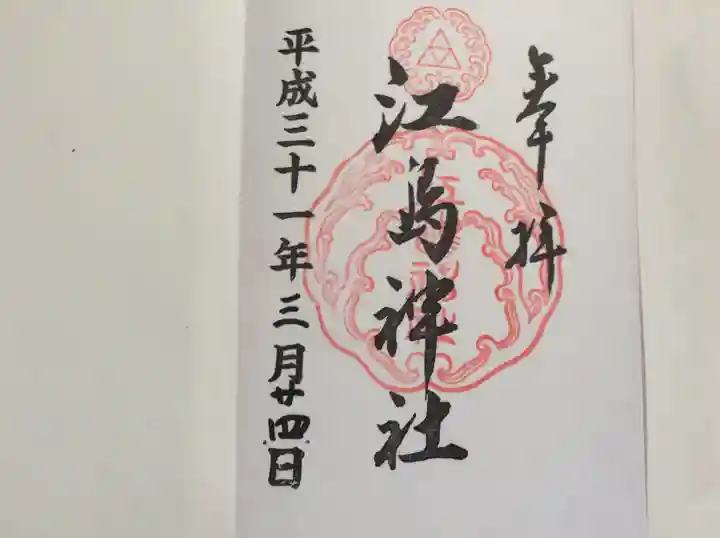 奉拝
江島神社
平成三十一年三月廿四日